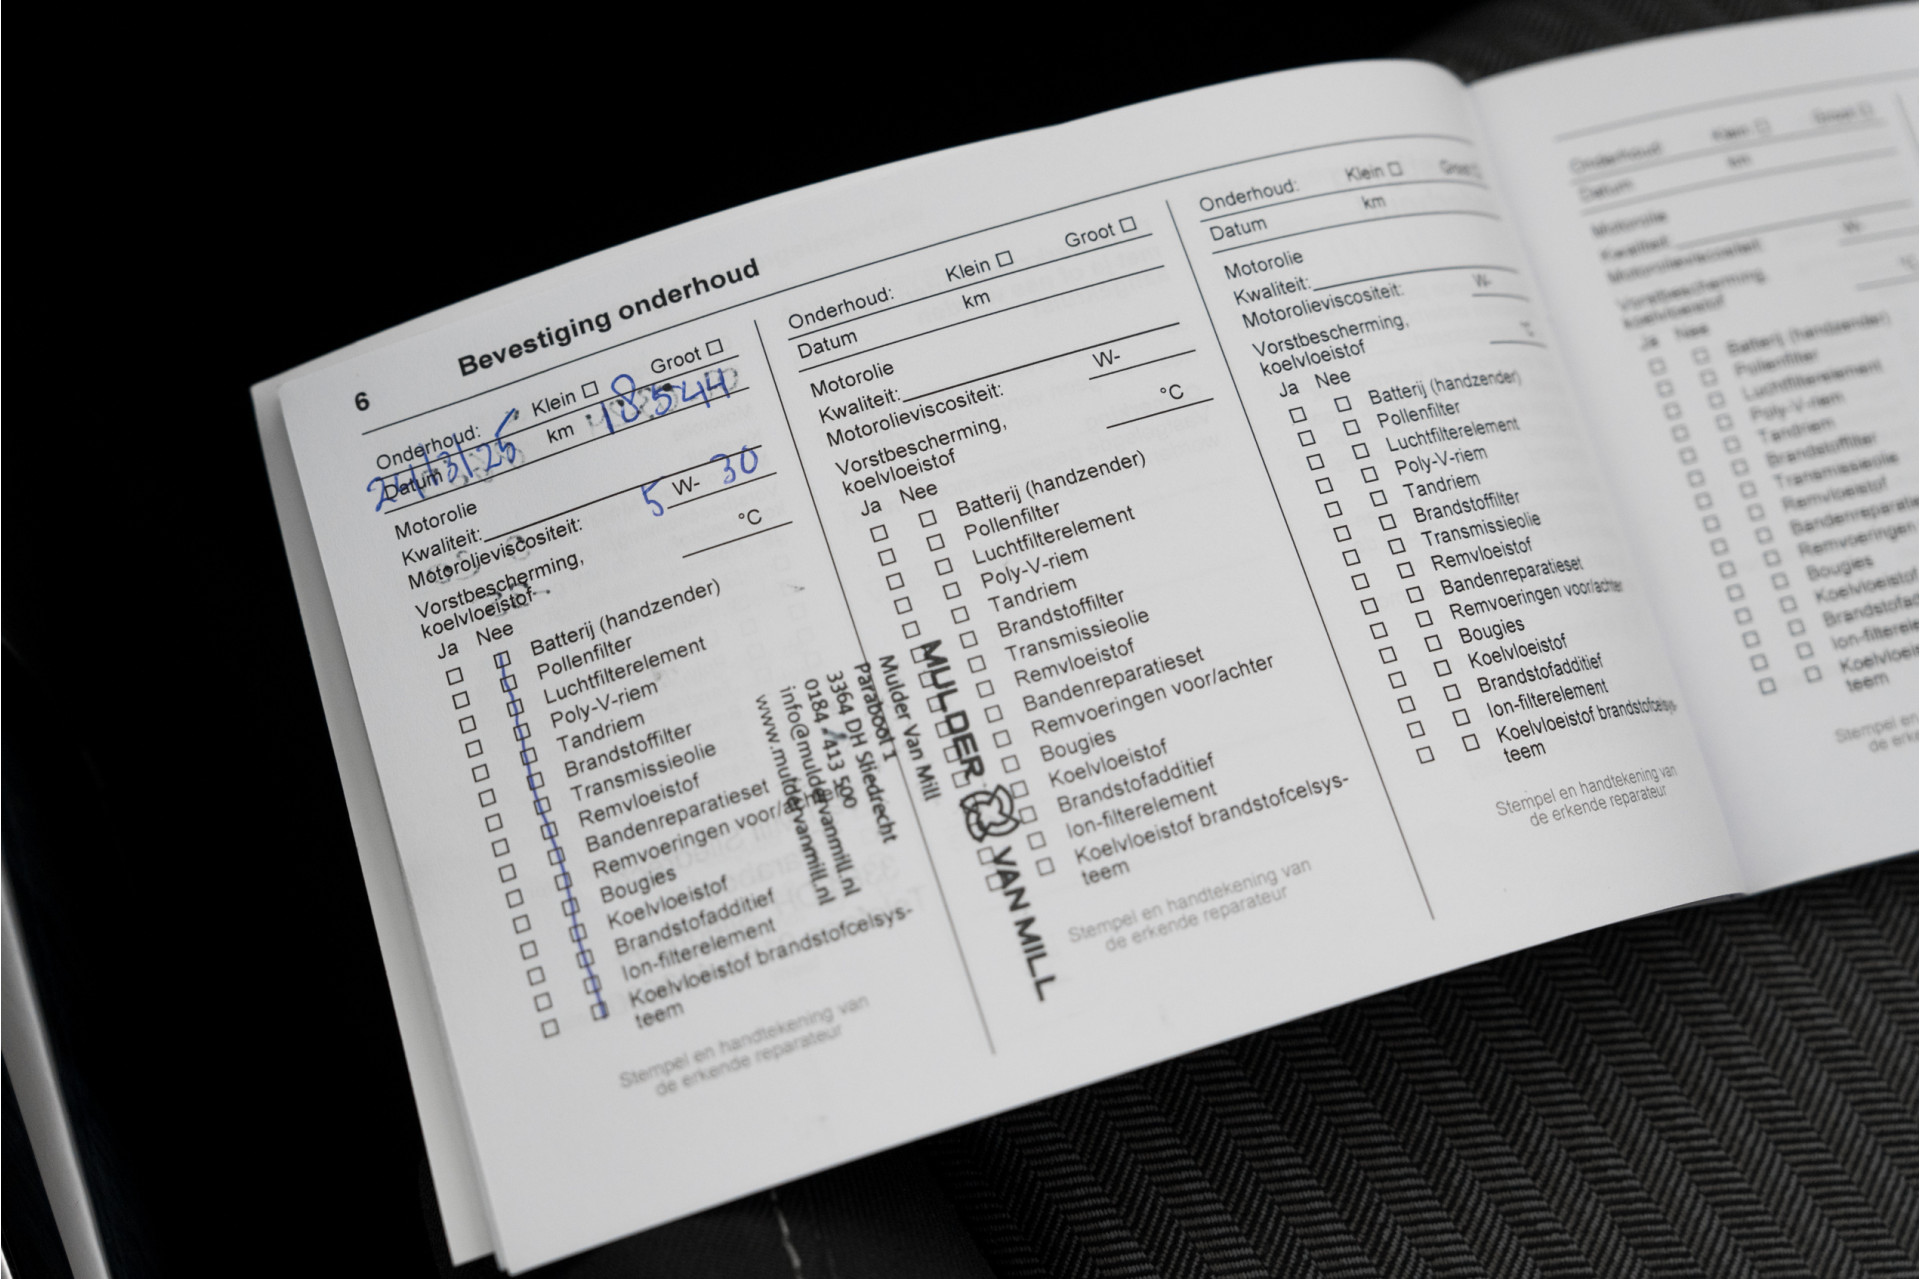 6 Bevestiging onderhoud
Onderhoud: Klein Groot
Datum 24/3/25 km 18544
Motorolie
Kwaliteit:
Motorolieviscositeit: 5 W- 30
Vorstbescherming,
koelvloeistof °C
Ja Nee
Batterij (handzender)
Pollenfilter
Luchtfilterelement
Poly-V-riem
Tandriem
Brandstoffilter
Transmissieolie
Remvloeistof
Bandenreparatieset
Remvoeringen voor/achter
Bougies
Koelvloeistof
Brandstofadditief
Ion-filterelement
Koelvloeistof brandstofcelsys-
teem
Stempel en handtekening van
de erkende reparateur
MULDER VAN MILL
Mulder Van Mill
Parabool 1
3364 DH Sliedrecht
0184 - 413 500
info@muldervanmill.nl
www.muldervanmill.nl
Onderhoud: Klein Groot
Datum km
Motorolie
Kwaliteit:
Motorolieviscositeit: W-
Vorstbescherming,
koelvloeistof °C
Ja Nee
Batterij (handzender)
Pollenfilter
Luchtfilterelement
Poly-V-riem
Tandriem
Brandstoffilter
Transmissieolie
Remvloeistof
Bandenreparatieset
Remvoeringen voor/achter
Bougies
Koelvloeistof
Brandstofadditief
Ion-filterelement
Koelvloeistof brandstofcelsys-
teem
Stempel en handtekening van
de erkende reparateur
Onderhoud: Klein Groot
Datum km
Motorolie
Kwaliteit:
Motorolieviscositeit: W-
Vorstbescherming,
koelvloeistof °C
Ja Nee
Batterij (handzender)
Pollenfilter
Luchtfilterelement
Poly-V-riem
Tandriem
Brandstoffilter
Transmissieolie
Remvloeistof
Bandenreparatieset
Remvoeringen voor/achter
Bougies
Koelvloeistof
Brandstofadditief
Ion-filterelement
Koelvloeistof brandstofcelsys-
teem
Stempel en handtekening van
de erkende reparateur
Onderhoud: Klein Groot
Datum km
Motorolie
Kwaliteit:
Motorolieviscositeit: W-
Vorstbescherming,
koelvloeistof °C
Ja Nee
Batterij (handzender)
Pollenfilter
Luchtfilterelement
Poly-V-riem
Tandriem
Brandstoffilter
Transmissieolie
Remvloeistof
Bandenreparatieset
Remvoeringen
Bougies
Koelvloeistof
teem
Stempel en
de erkende